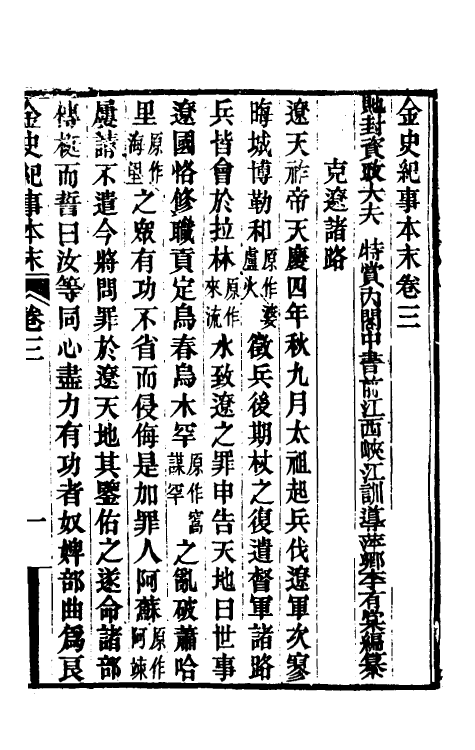 金史紀事本末卷三
賜封資政大夫 特賞內閣中書前江西峽江訓導萍鄉李有棠編纂
克遼諸路
遼天祚帝天慶四年秋九月太祖起兵伐遼軍次寥
晦城博勒和原作婆盧火徵兵後期杖之復遣督軍諸路
兵皆會於拉林原作來流水致遼之罪申告天地曰世事
遼國恪修職貢定烏春烏木罕原作窩謀罕之亂破蕭哈
里原作海里之眾有功不省而侵侮是加罪人阿蘇原作阿疎
屢請不遣今將問罪於遼天地其鑒佑之遂命諸部
傳梃而誓曰汝等同心盡力有功者奴婢部曲爲良
金史紀事本末 卷三 一